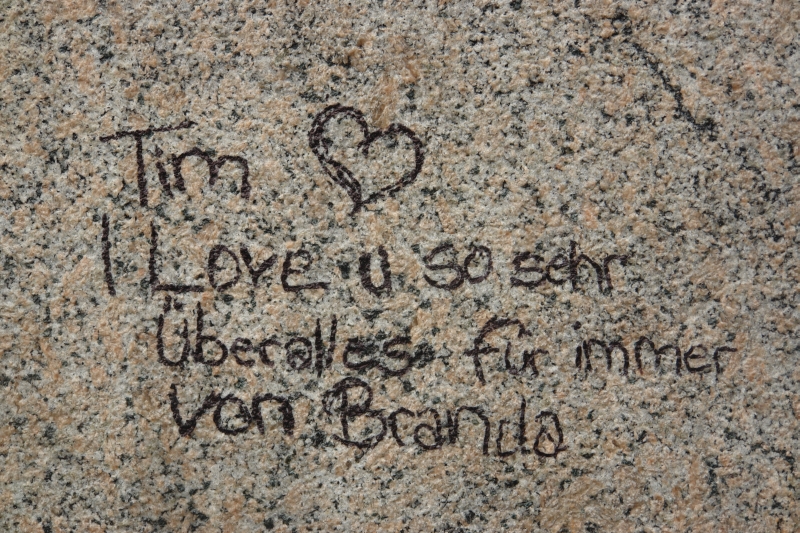 Tim
I Love u so sehr
Überalles für immer
von Branda